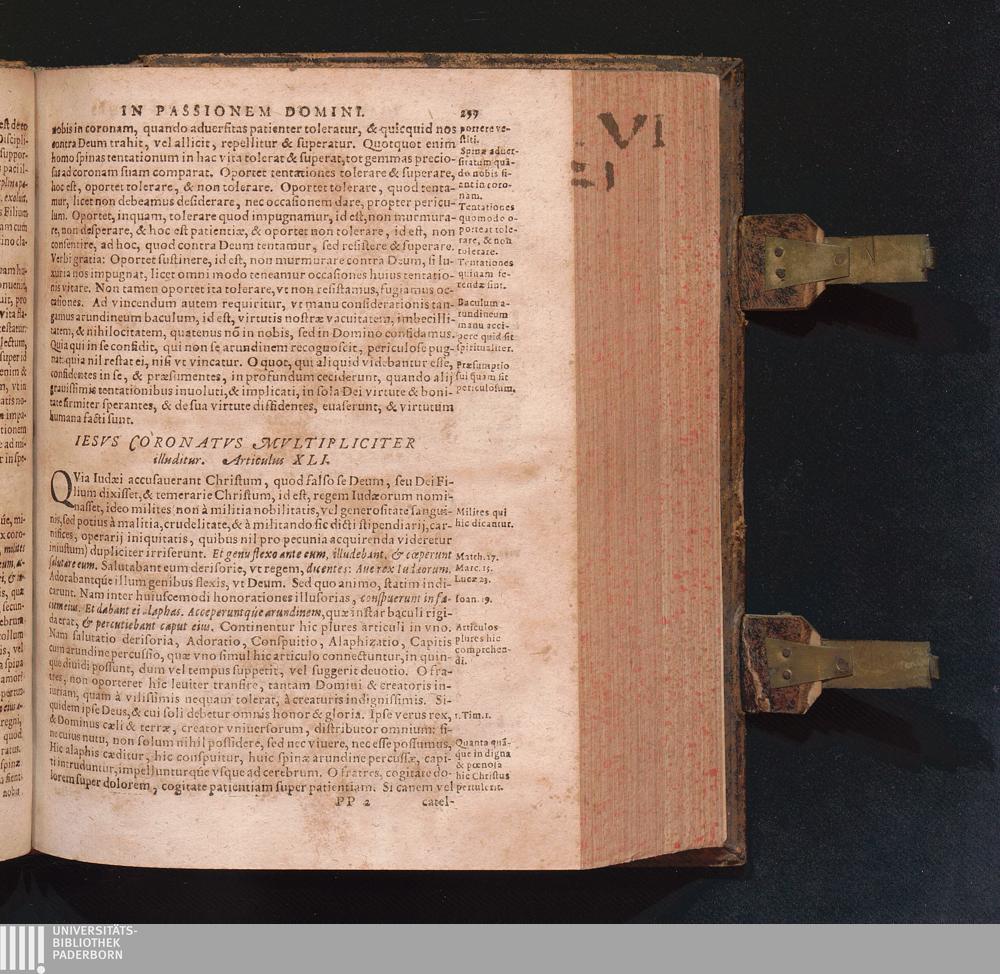 IN PASSIONEM DOMINI. 299
nobis in coronam, quando aduersitas patienter toleratur, & quicquid nos
contra Deum trahit, vel allicit, repellitur & superatur. Quotquot enim
homo spinas tentationum in hac vita tolerat & superat, tot gemmas precio-
sus ad coronam suam comparat. Oportet tentationes tolerare & superare,
hoc est, oportet tolerare, & non tolerare. Oportet tolerare, quod tenta-
mur, licet non debeamus desiderare, nec occasionem dare, propter pericu-
lum. Oportet, inquam, tolerare quod impugnamur, id est, non murmura-
re, non desperare, & hoc est patientiæ, & oportet non tolerare, id est, non
consentire, ad hoc, quod contra Deum tentamur, sed resistere & superare.
Verbi gratia: Oportet sustinere, id est, non murmurare contra Deum, si lu-
xuria nos impugnat, licet omni modo teneamur occasiones huius tentatio-
nis vitare. Non tamen oportet ita tolerare, vt non resistamus, fugiamus oc-
casiones. Ad vincendum autem requiritur, vt manu considerationis tan-
gamus arundineum baculum, id est, virtutis nostræ vacuitatem, imbecilli-
tatem, & nihilocitatem, quatenus nō in nobis, sed in Domino confidamus.
Quia qui in se confidit, qui non se arundinem recognoscit, periculose pug-
nat: quia nil restat ei, nisi vt vincatur. O quot, qui aliquid videbantur esse,
confidentes in se, & præsumentes, in profundum ceciderunt, quando alij
grauissimis tentationibus inuoluti, & implicati, in sola Dei virtute & boni-
tate firmiter sperantes, & de sua virtute diffidentes, euaserunt, & virtutum
humana facti sunt.
porrere ve-
stiti.
Spinæ aduer-
sitatum quā-
do nobis fi-
ant in coro-
nam.
Tentationes
quomodo o-
porteat tole-
rare, & non
tolerare.
Tentationes
quinam fe-
rendæ sint.
Baculum a-
rundineum
manu acci-
pere quid sit
spiritualiter.
Præsumptio
sui quam sit
periculosum.
IESVS CORONATVS MVLTIPLICITER
illuditur. Articulus XLI.
QVia Iudæi accusauerant Christum, quod falso se Deum, seu Dei Fi-
lium dixisset, & temerarie Christum, id est, regem Iudæorum nomi-
nasset, ideo milites non à militia nobilitatis, vel generositate sangui-
nis, sed potius à malitia, crudelitate, & à militando sic dicti stipendiarij, car-
nifices, operarij iniquitatis, quibus nil pro pecunia acquirenda videretur
iniustum) dupliciter irriserunt. Et genu flexo ante eum, illudebant, & cœperunt
salutare eum. Salutabant eum derisorie, vt regem, dicentes: Aue rex Iudæorum.
Adorabantqúe illum genibus flexis, vt Deum. Sed quo animo, statim indi-
carunt. Nam inter huiuscemodi honorationes illusorias, conspuerunt in fa-
ciem eius. Et dabant ei alaphas. Acceperuntqúe arundinem, quæ instar baculi rigi-
da erat, & percutiebant caput eius. Continentur hic plures articuli in vno.
Nam salutatio derisoria, Adoratio, Conspuitio, Alaphizatio, Capitis
cum arundine percussio, quæ vno simul hic articulo connectuntur, in quin-
que diuidi possunt, dum vel tempus suppetit, vel suggerit deuotio. O fra-
tres, non oporteret hîc leuiter transire, tantam Domini & creatoris in-
iuriam, quam à vilissimis nequam tolerat, à creaturis indignissimis. Si-
quidem ipse Deus, & cui soli debetur omnis honor & gloria. Ipse verus rex,
& Dominus cæli & terræ, creator vniuersorum, distributor omnium: si-
ne cuius nutu, non solum nihil possidere, sed nec viuere, nec esse possumus.
Hic alaphis cæditur, hic conspuitur, huic spinæ arundine percussæ, capi-
ti intruduntur, impellunturqúe vsque ad cerebrum. O fratres, cogitate do-
lorem super dolorem, cogitate patientiam super patientiam. Si canem vel
Milites qui
hic dicantur.
Matth. 27.
Marc. 15.
Lucæ 23.
Ioan. 19.
Articulos
plures hic
comprehen-
di.
1. Tim. 1.
Quanta quā-
que indigna
& pœnosa
hic Christus
pertulerit.
PP 2 catel-
VI
UNIVERSITÄTS-
BIBLIOTHEK
PADERBORN